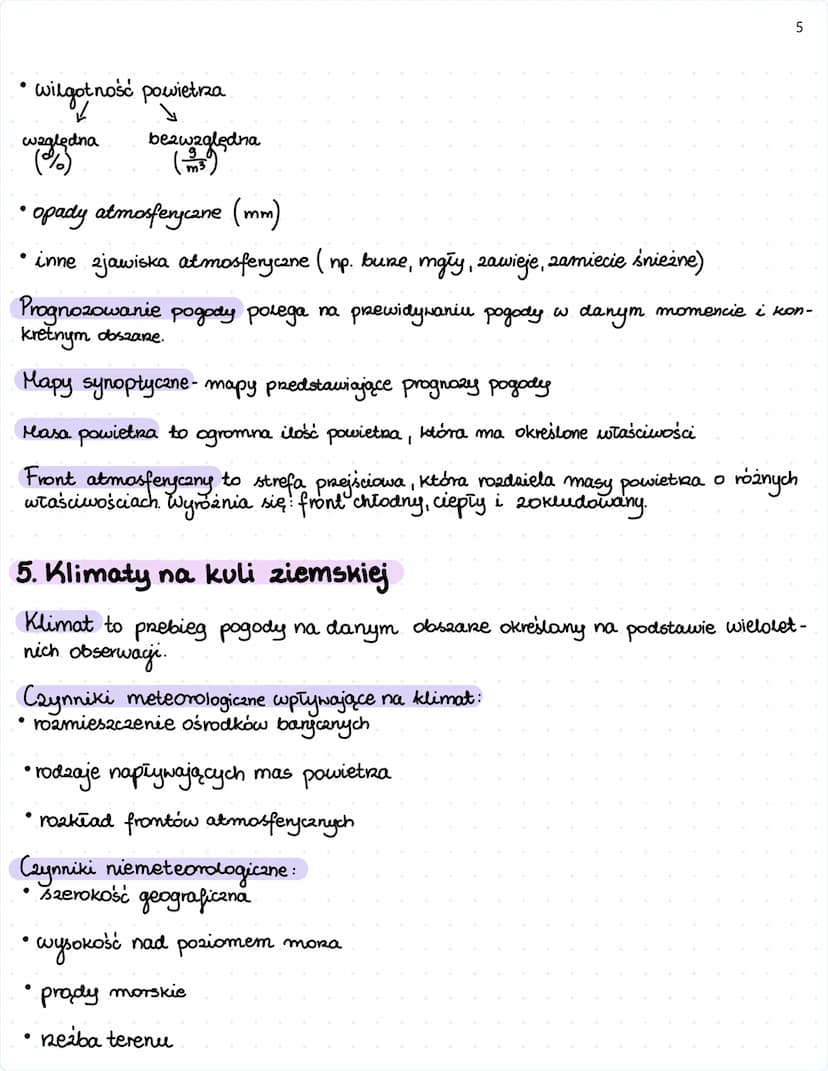 5
• wilgotność powietrza
względna bezwzględna
(%) (g/m³)
• opady atmosferyczne (mm)
• inne zjawiska atmosferyczne ( np. burze, mgły, zawieje, zamiecie śnieżne)
Prognozowanie pogody polega na przewidywaniu pogody w danym momencie i kon-
kretnym obszarze.
Mapy synoptyczne - mapy przedstawiające prognozy pogody
Masa powietrza to ogromna ilość powietrza, która ma określone właściwości
Front atmosferyczny to strefa przejściowa, która rozdziela masy powietrza o różnych
właściwościach. Wyróżnia się: front chłodny, ciepły i zokludowany.
5. Klimaty na kuli ziemskiej
Klimat to przebieg pogody na danym obszarze określany na podstawie wielolet-
nich obserwacji.
Czynniki meteorologiczne wpływające na klimat:
• rozmieszczenie ośrodków barycznych
• rodzaje napływających mas powietrza
• rozkład frontów atmosferycznych
Czynniki niemeteorologiczne:
• szerokość geograficzna
• wysokość nad poziomem morza
• prądy morskie
• rzeźba terenu